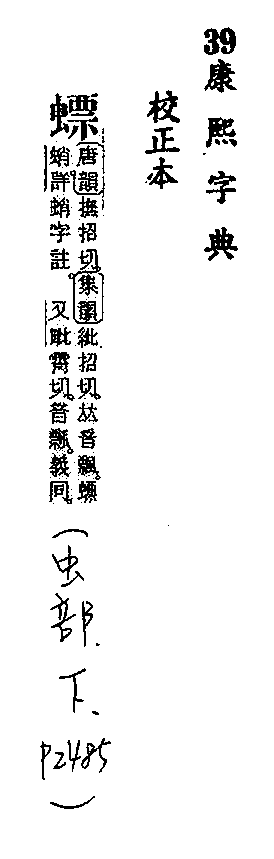 39康熙字典
校正本
螵
唐韻撫招切。集韻紕招切。𠀤音飄。螵
蛸詳蛸字註。 又毗霄切。音瓢。義同。
(虫部.下、P2485)